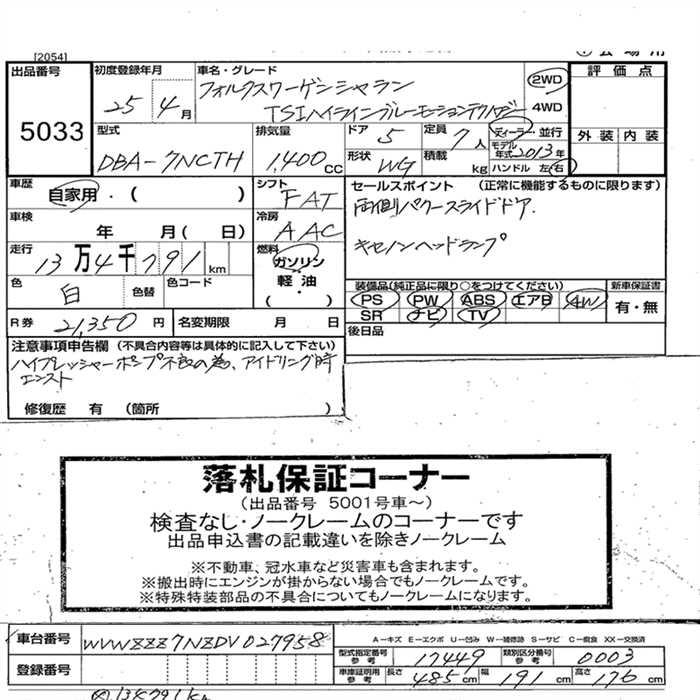 [2054]
出品番号
5033
初度登録年月
25年4月
車名・グレード
フォルクスワーゲンシャラン
TSIハイラインブルーモーションテクノロジー
2WD
4WD
評価点
外装 内装
型式
DBA-7NCTH
排気量
1,400 CC
ドア 5
定員 7人
形状 WG
積載 kg
ディーラー 並行
モデル年式 2013年
ハンドル 左 右
車歴
自家用・( )
シフト
FAT
セールスポイント (正常に機能するものに限ります)
両側パワースライドドア.
キセノンヘッドランプ
車検
年 月( 日)
冷房
AAC
走行
13万4千791km
燃料
ガソリン
軽油
・( )
色
白
色替
色コード
装備品(純正品に限り○をつけてください)
PS PW ABS エアB AW
SR ナビ TV
新車保証書
有・無
R券 21,350円
名変期限 月 日
後日品
注意事項申告欄 (不具合内容等は具体的に記入して下さい)
ハイプレッシャーポンプ不良の為、アイドリング時
エンスト
修復歴 有 (箇所 )
落札保証コーナー
(出品番号 5001号車〜)
検査なし・ノークレームのコーナーです
出品申込書の記載違いを除きノークレーム
※不動車、冠水車など災害車も含まれます。
※搬出時にエンジンが掛からない場合でもノークレームです。
※特殊特装部品の不具合についてもノークレームになります。
車台番号
WVWZZZ7NZDV027958
A-キズ E-エクボ U-凹み W-補修跡 S-サビ C-腐食 XX-交換済
型式指定番号 参考 17449
類別区分番号 参考 0003
登録番号
車庫証明用 参考 長さ 485cm 幅 191cm 高さ 176cm